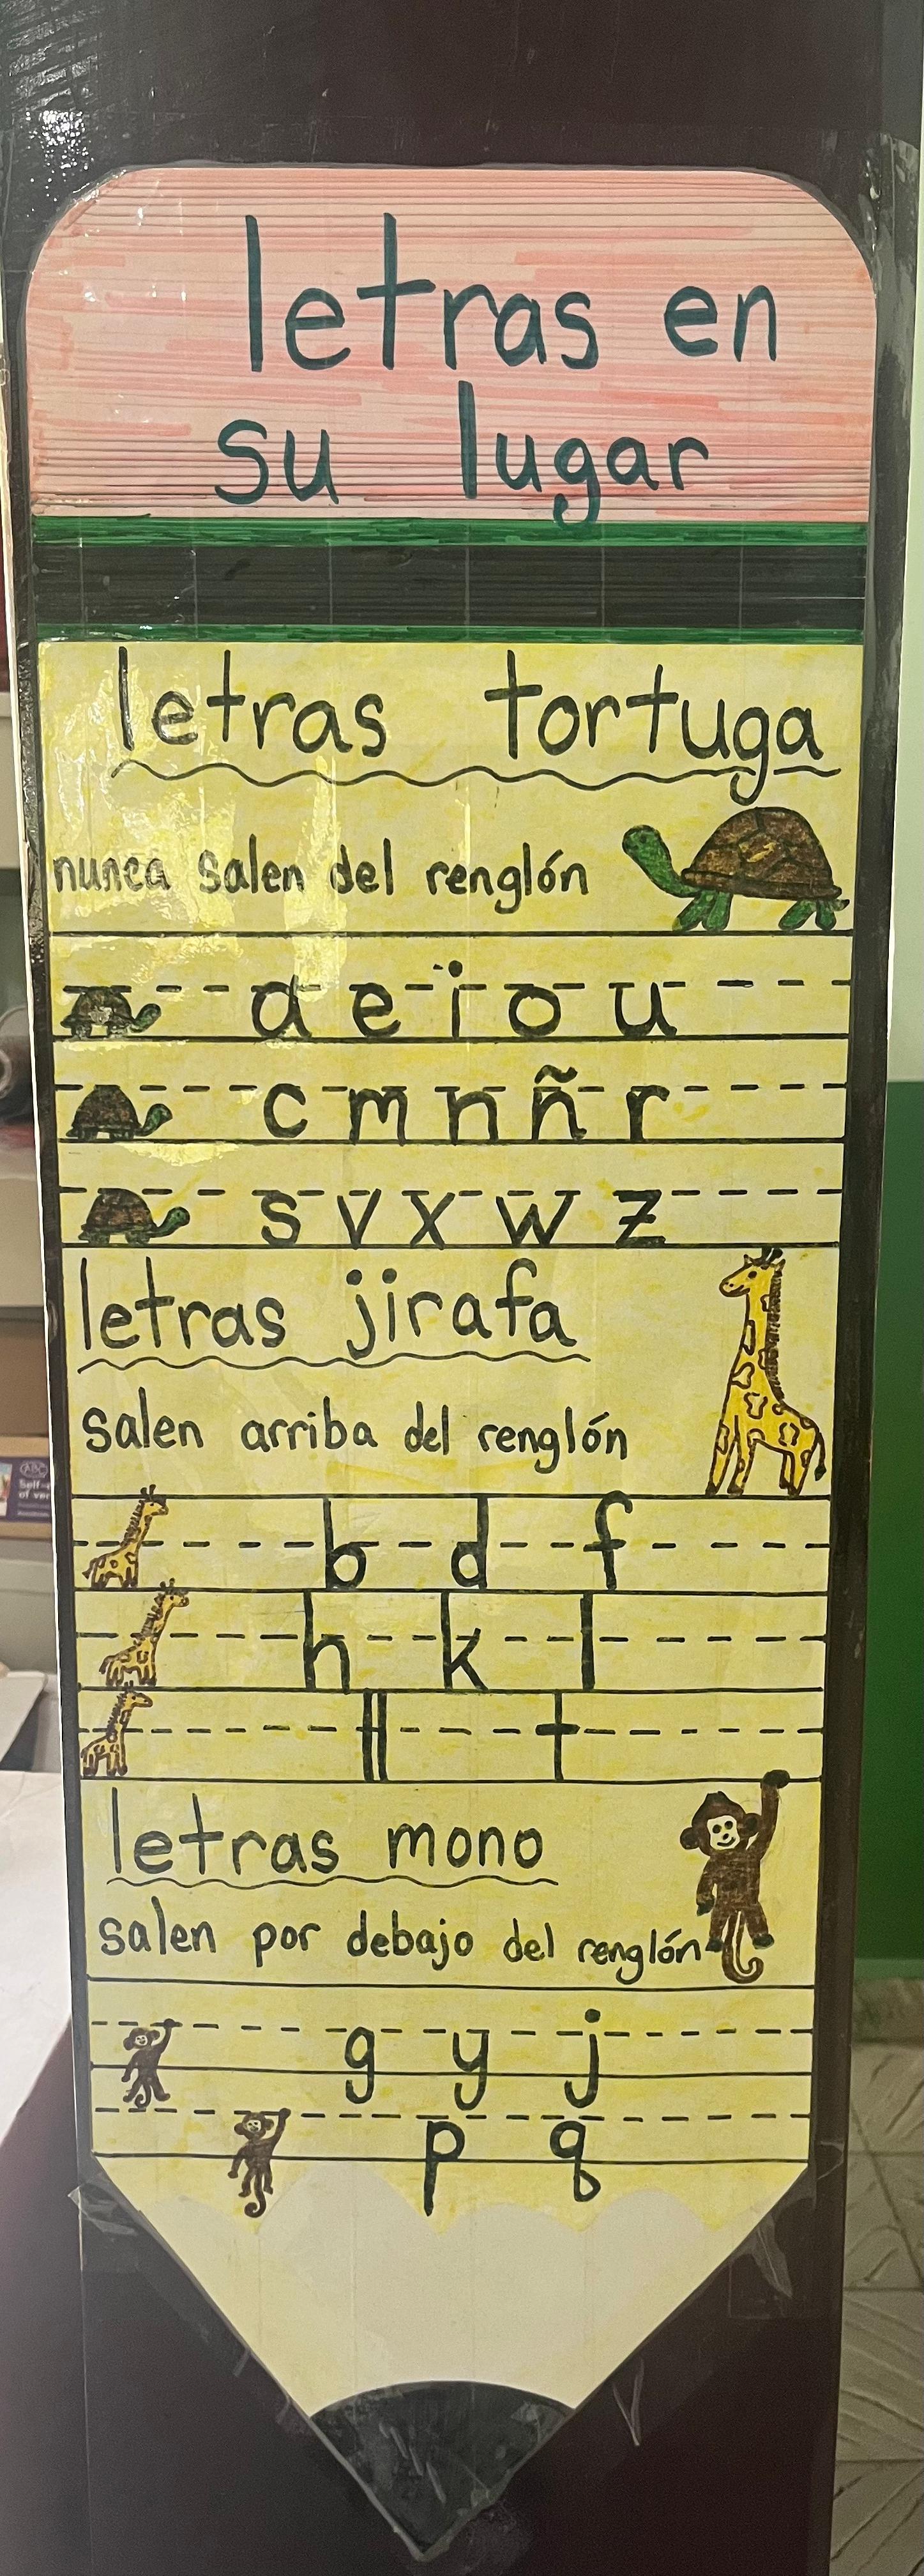 letras en
su lugar
letras tortuga
nunca salen del renglón
a e i o u
c m n ñ r
s v x w z
letras jirafa
salen arriba del renglón
b d f
h k l
ll t
letras mono
salen por debajo del renglón
g y j
p q
ABC